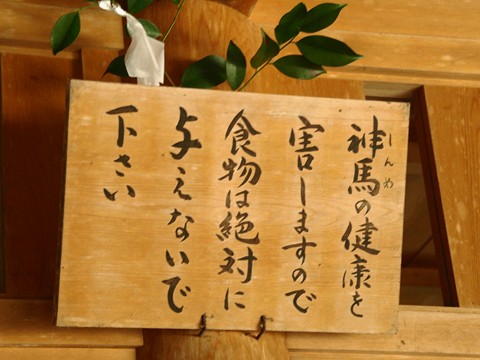 神馬の健康を
しんめ
害しますので
食物は絶対に
与えないで
下さい